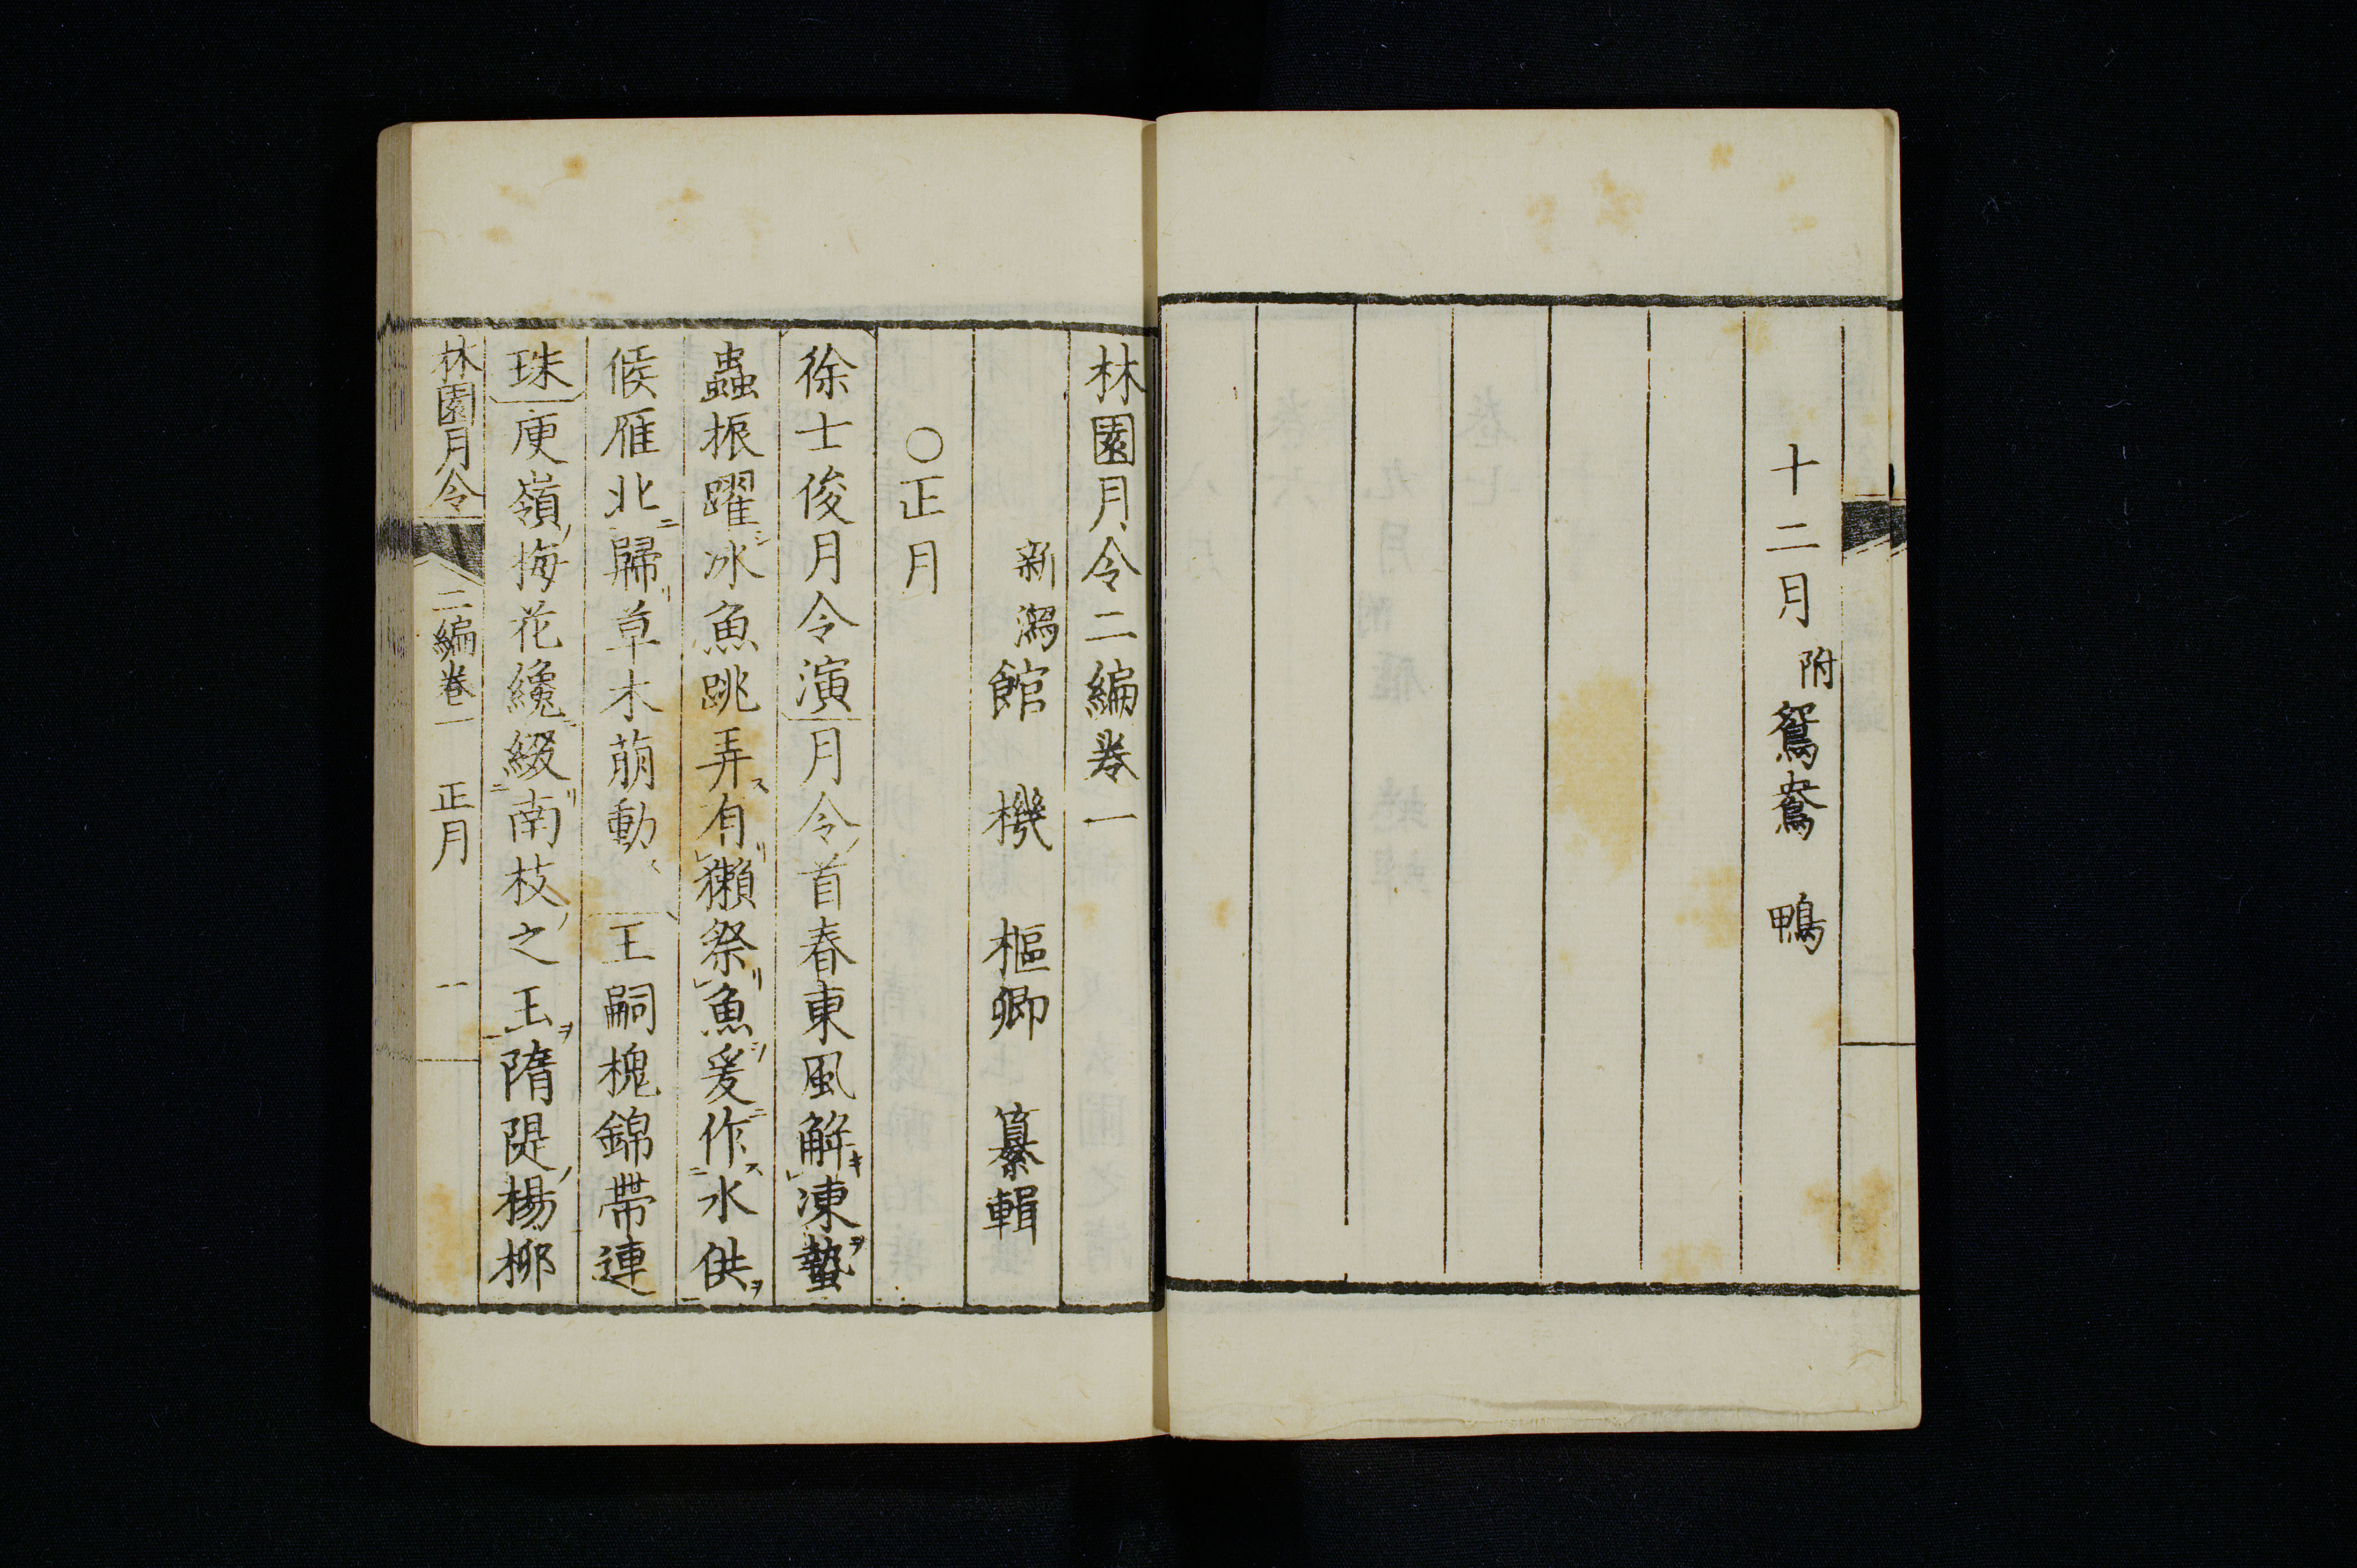 十二月 附 鴛鴦 鴨
林園月令二編巻一
新潟 館 機 樞卿 纂輯
○正月
徐士俊月令演 月令首春東風解凍蟄
蟲振躍氷魚跳弄有獺祭魚爰作水供
候雁北歸草木萠動 王嗣槐錦帶連
珠 庾嶺梅花纔綴南枝之玉隋隄楊柳
林園月令 二編巻一 正月 一